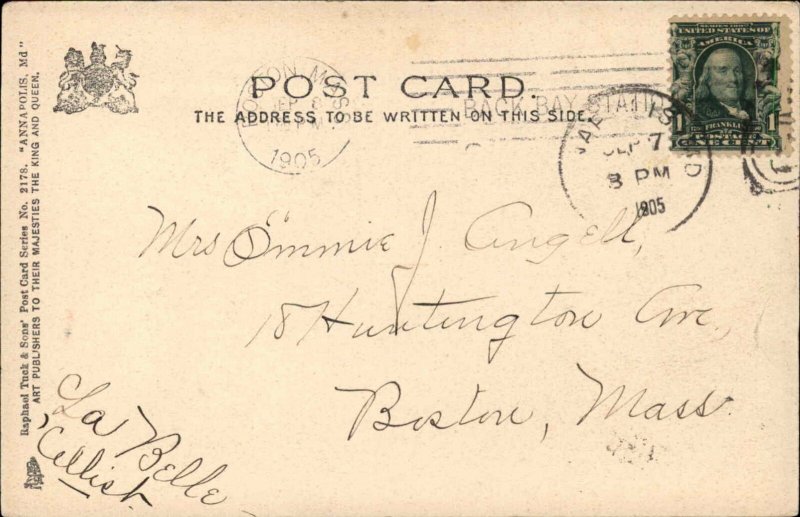 POST CARD.
THE ADDRESS TO BE WRITTEN ON THIS SIDE.
Raphael Tuck & Sons' Post Card Series No. 2178. "ANNAPOLIS, Md"
ART PUBLISHERS TO THEIR MAJESTIES THE KING AND QUEEN.
BOSTON, MASS.
SEP 8
1905
BACK BAY STATION
SEP 7
8 PM
1905
SERIES 1902
UNITED STATES OF
AMERICA
FRANKLIN
POSTAGE
1 ONE CENT 1
Mrs Emmie J. Angell,
18 Huntington Ave,
Boston, Mass.
La Belle
Cellist